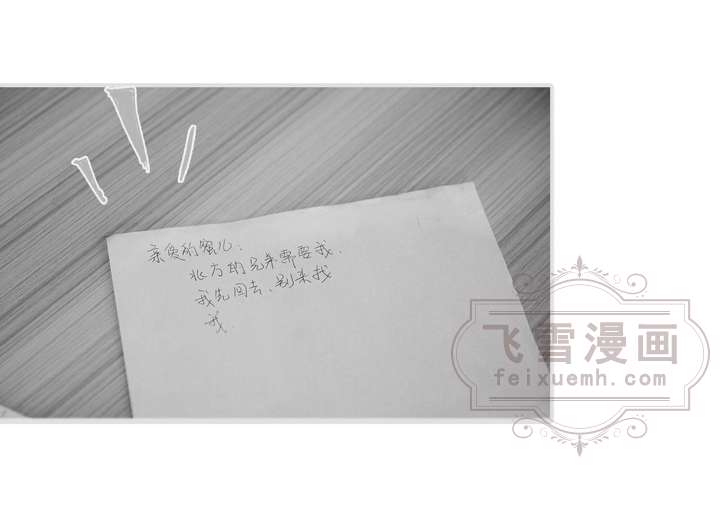 亲爱的蜜儿：
北方的兄弟需要我.
我先回去、别来找
我.
飞雪漫画
feixuemh.com